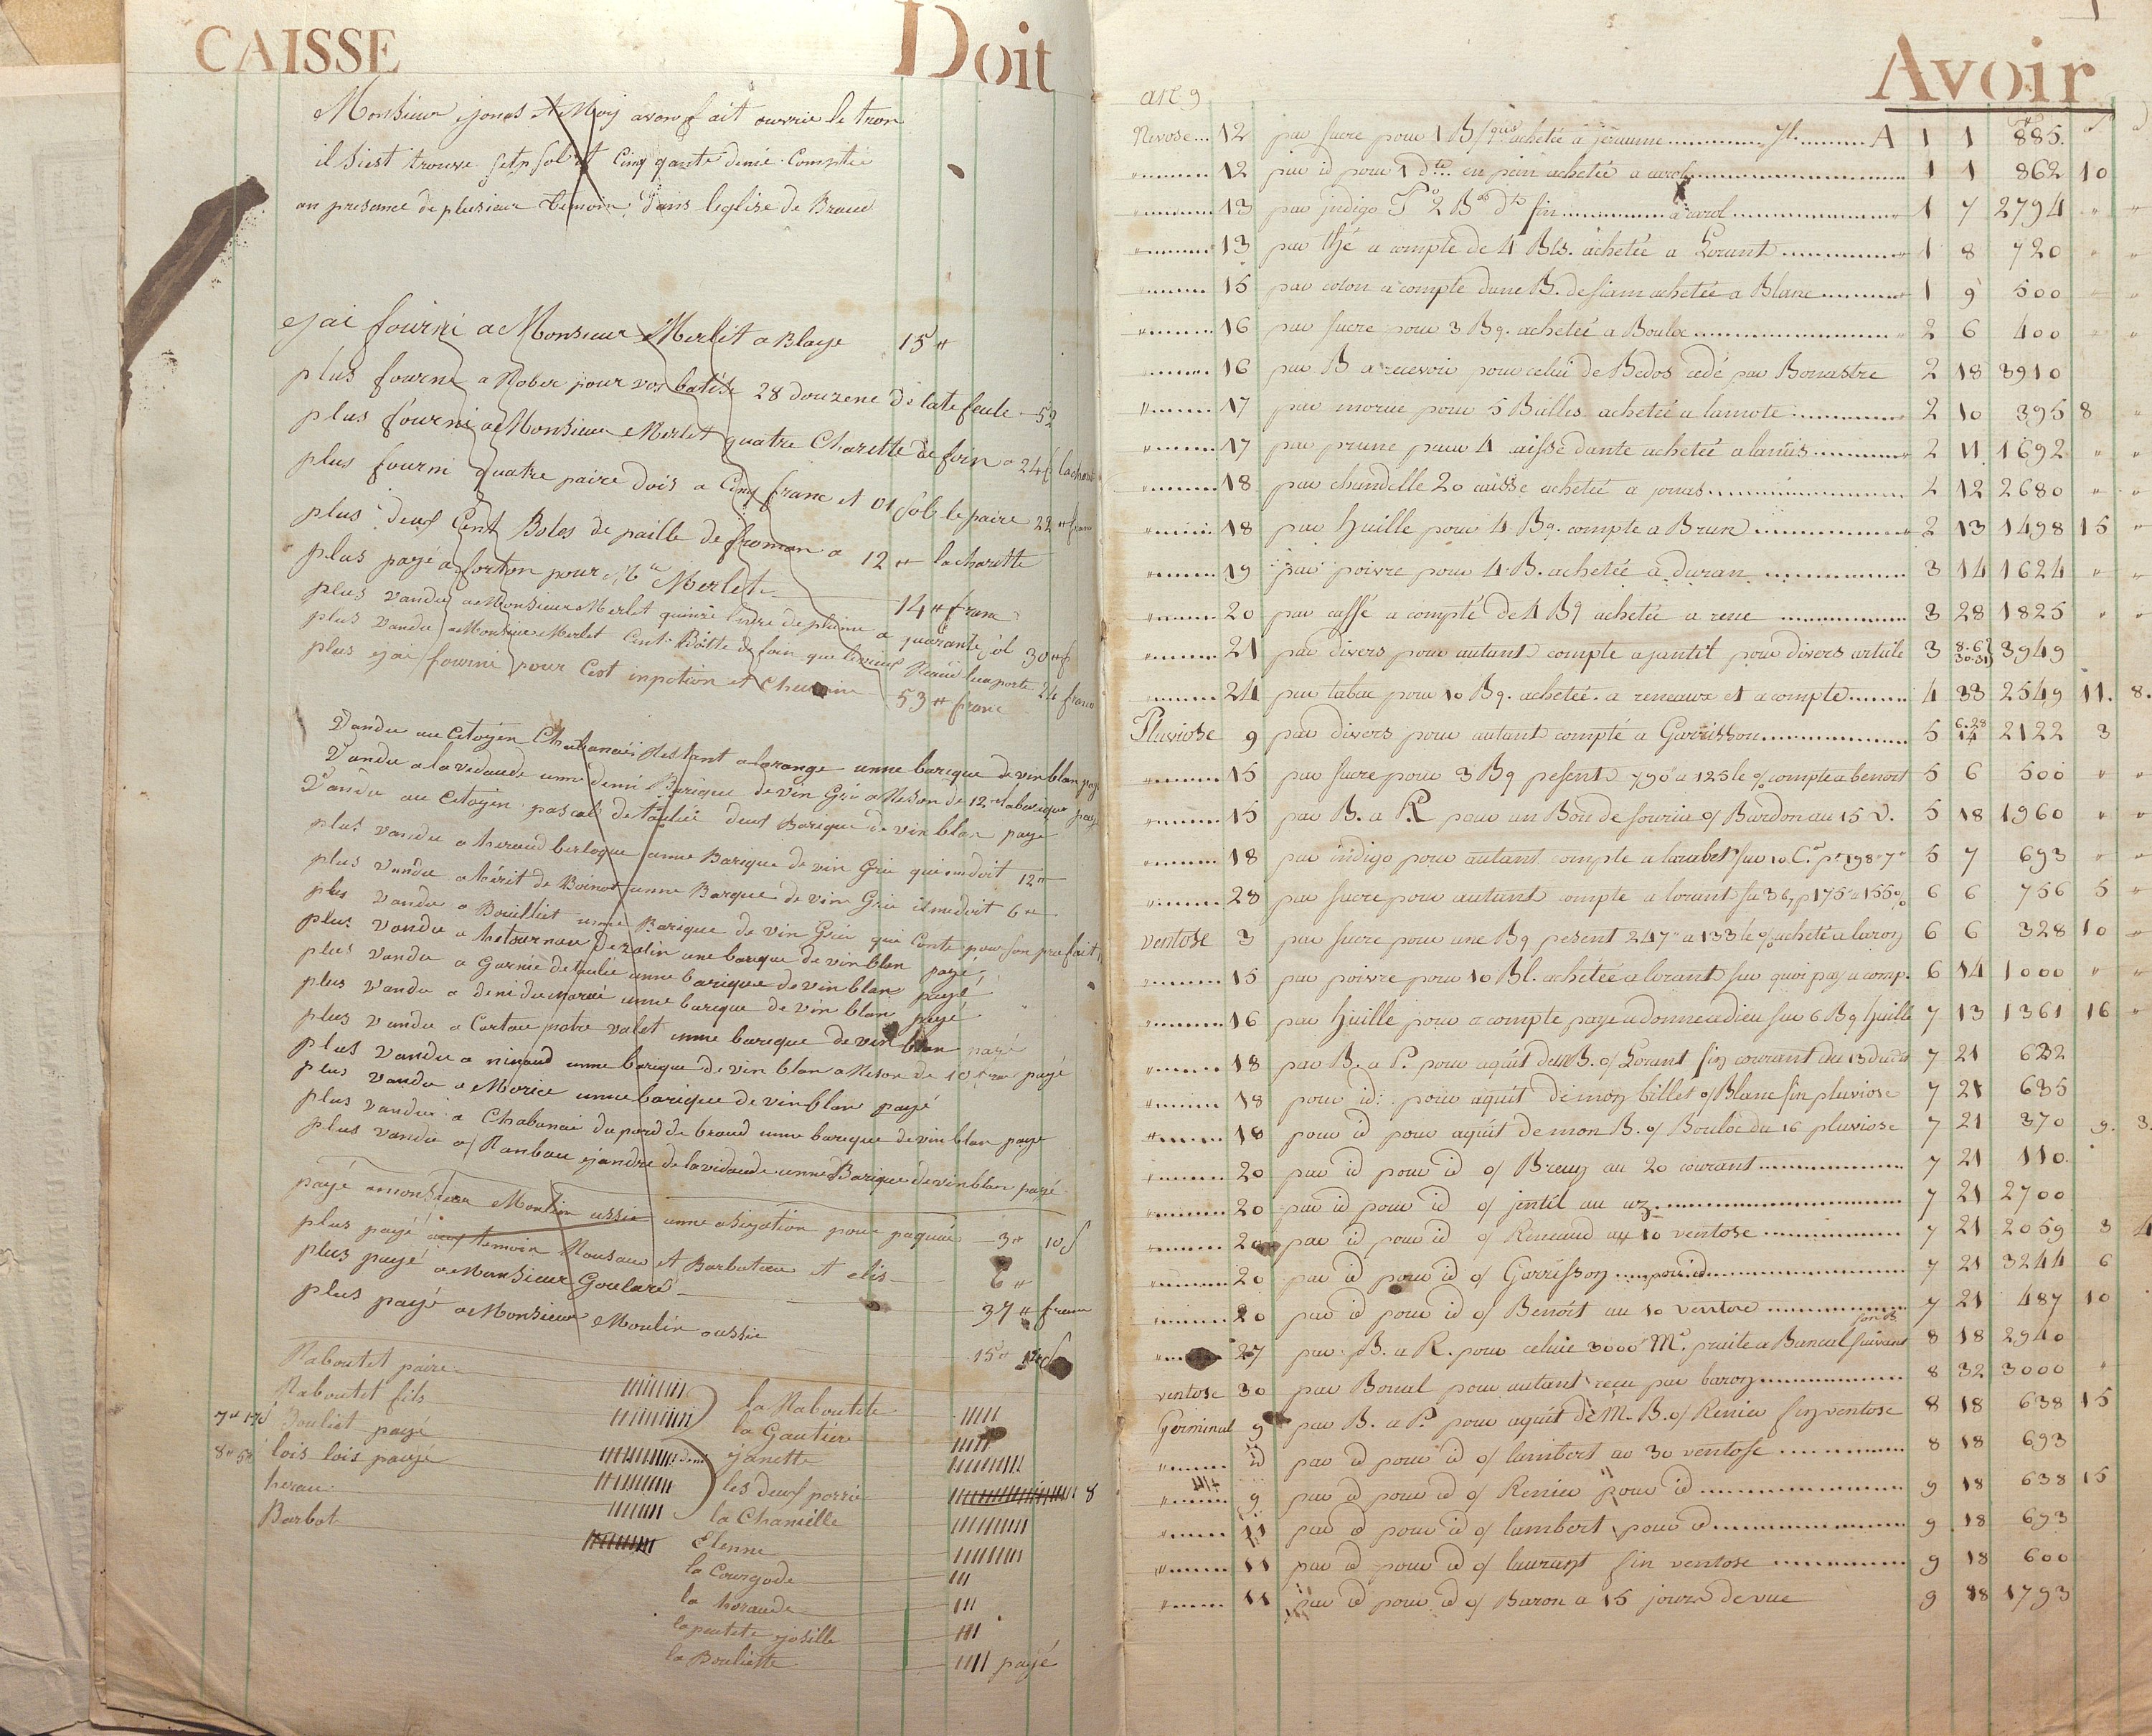 CAISSE Doit
Monsieur jonas et Moy avons fait ouvrir le tron
il s'est trouve set sol et Cinq qante denié Comptée
an presance de plusieur temoin dans leglise de Braud
ejai fourni a Monsieur Merlit a Blaye 15 "
plus fourni a Rober pour vos batise 28 douzene de late feule 52
plus fourni a Monsieur Merlet quatre Charette de foin a 24 f
plus fourni quatre paire dois a Cinq franc et 01 sols le paire 22 "
plus deus Cent Botes de paille de froman a 12 " la charette
plus payé a forton pour Mr Merlet 14 " franc
plus vandu a Monsieur Merlet quinze livre de plume a quarante sol 30 " f
plus vandu a Monsieur Merlet Cent Botte de foin 24 franc
plus ejai fourni pour Cest inpotion et Chemin 53 " franc
Vandu au Citoyen Chabanais Restant a lorange unne barique de vin blan payé
Vandu a la vidaude unne demi Barique de vin Gris a Reson de 12 " la barique payé
Vandu au Citoyen pascal de taulié deus Barique de vin blan paye
plus vandu a heraud berloque unne Barique de vin Gris qui medoit 12 "
plus vandu a bérit de Boinot unne Barique de vin Gris ilmedoit 6 "
plus vandu a Bouilliet unne Barique de vin Gris qui Conte pour son prefait
plus vandu a hetournau de zolin une barique de vin blan payé
plus vandu a Garnié detaulie unne barique de vin blan payé
plus vandu a deni du marai unne barique de vin blan payé
plus vandu a Cartau notre valet unne barique de vin blan payé
plus vandu a niraud unne barique de vin blan a Reson de 10 payé
plus vandu a Morice unne barique de vin blan payé
plus vandu a Chabanai du pord de braud unne barique de vin blan paye
plus vandu a Ranbau ejandre de la vidaude unne Barique de vin blan payé
payé amonsieur Moulin ussie unne asigation pour paquié 3 " 10 s
plus payé aus temoin Rousau et Barbateau et elis 6 "
plus payé a Monsieur Goulard 37 " franc
plus payé a Monsieur Moulin oussie 15 "
Raboutet paire
Raboutet fils la Raboutete
7 " 17 s Bouliet payé la Gautiere
8 " 5 s lois lois payé janette
herau les deus porrie
Barbot la Chanielle
Elenne
la Courgode
la heraude
la peutete josille
la Bouliette payé
Avoir
an 9
Nivose 12 par sucre pour 1 Bque achetée a jéraume A 1 1 885
12 par id pour 1 dte en pain achetée a carol 1 1 862 10
13 par jndigo Po 2 Bes dto fin a carol 1 7 2794
13 par thé a compte de 4 Bls. achetée a Lorant 1 8 720
15 par coton a compte dune B. de siam achetée a Blanc 1 9 500
16 par sucre pour 3 Bq. achetée a Bouloc 2 6 400
16 par B a recevoir pour celui de Bedos cédé par Bonnastre 2 18 3910
17 par morue pour 5 Balles achetée a lamote 2 10 395 8
17 par prune pour 4 aisse dante achetée a lanüs 2 11 1692
18 par chandelle 20 caisse achetée a jonas 2 12 2680
18 par huille pour 4 Bq. compte a Brun 2 13 1498 15
19 par poivre pour 4 B. achetée a duran 3 14 1624
20 par caffé a compte de 4 Bq achetée a rene 3 28 1825
21 par divers pour autant compte a jantil pour divers article 3 8.6 30.31 3949
24 par tabac pour 10 Bq. achetée a reneaux et a compte 4 33 2549 11. 8.
Pluviose 9 par divers pour autant compté a Garrisson 5 6.28 14 2122 3
15 par sucre pour 3 Bq pesent 790 " a 125 le % compte a benoit 5 6 500
15 par B. a R. pour un Bon de souria o/ Burdon au 15 V. 5 18 1960
18 par indigo pour autant compte a laraubet sur 10 C. pt 198 " 7 " 5 7 693
28 par sucre pour autant compte a lorant sur 3 b p 175 " a 155 % 6 6 756 5
ventose 3 par sucre pour une Bq pesent 247 " a 133 le % acheté a baron 6 6 328 10
15 par poivre pour 10 Bl. achétée a lorant sur quoi pay a comp. 6 14 1000
16 par huille pour a compte paye a donneadieu sur 6 Bq huille 7 13 1361 16
18 par B. a P. pour aquit de M B. o/ Lorant fin courant du 13 dudit 7 21 622
18 pour id: pour aquit de mon billet o/ Blanc fin pluviose 7 21 635
18 pour id pour aquit de mon B. o/ Bouloc du 16 pluviose 7 21 370 9. 3.
20 par id pour id o/ Breuz au 20 courant 7 21 110.
20 par id pour id o/ jentil au 7 21 2700
20 par id pour id o/ Reneaud au 10 ventose 7 21 2059 3 4
20 par id pour id o/ Garrisson pour id 7 21 3244 6
20 par id pour id o/ Benoit au 10 ventose 7 21 487 10
27 par B. a R. pour celuie 3000 " Mc. praite a Bancal suivant son B 8 18 2940
ventose 30 par Boual pour autant reçu par baron 8 32 3000
Germinal 9 par B. a P. pour aquit de M. B. o/ Renieu fin ventose 8 18 638 15
id par id pour id o/ lambert au 30 ventose 8 18 693
9 par id pour id o/ Renieu pour id 9 18 638 15
11 par id pour id o/ lambert pour id 9 18 693
11 par id pour id o/ laurant fin ventose 9 18 600
11 par id pour id o/ Baron a 15 jours de vue 9 18 1793